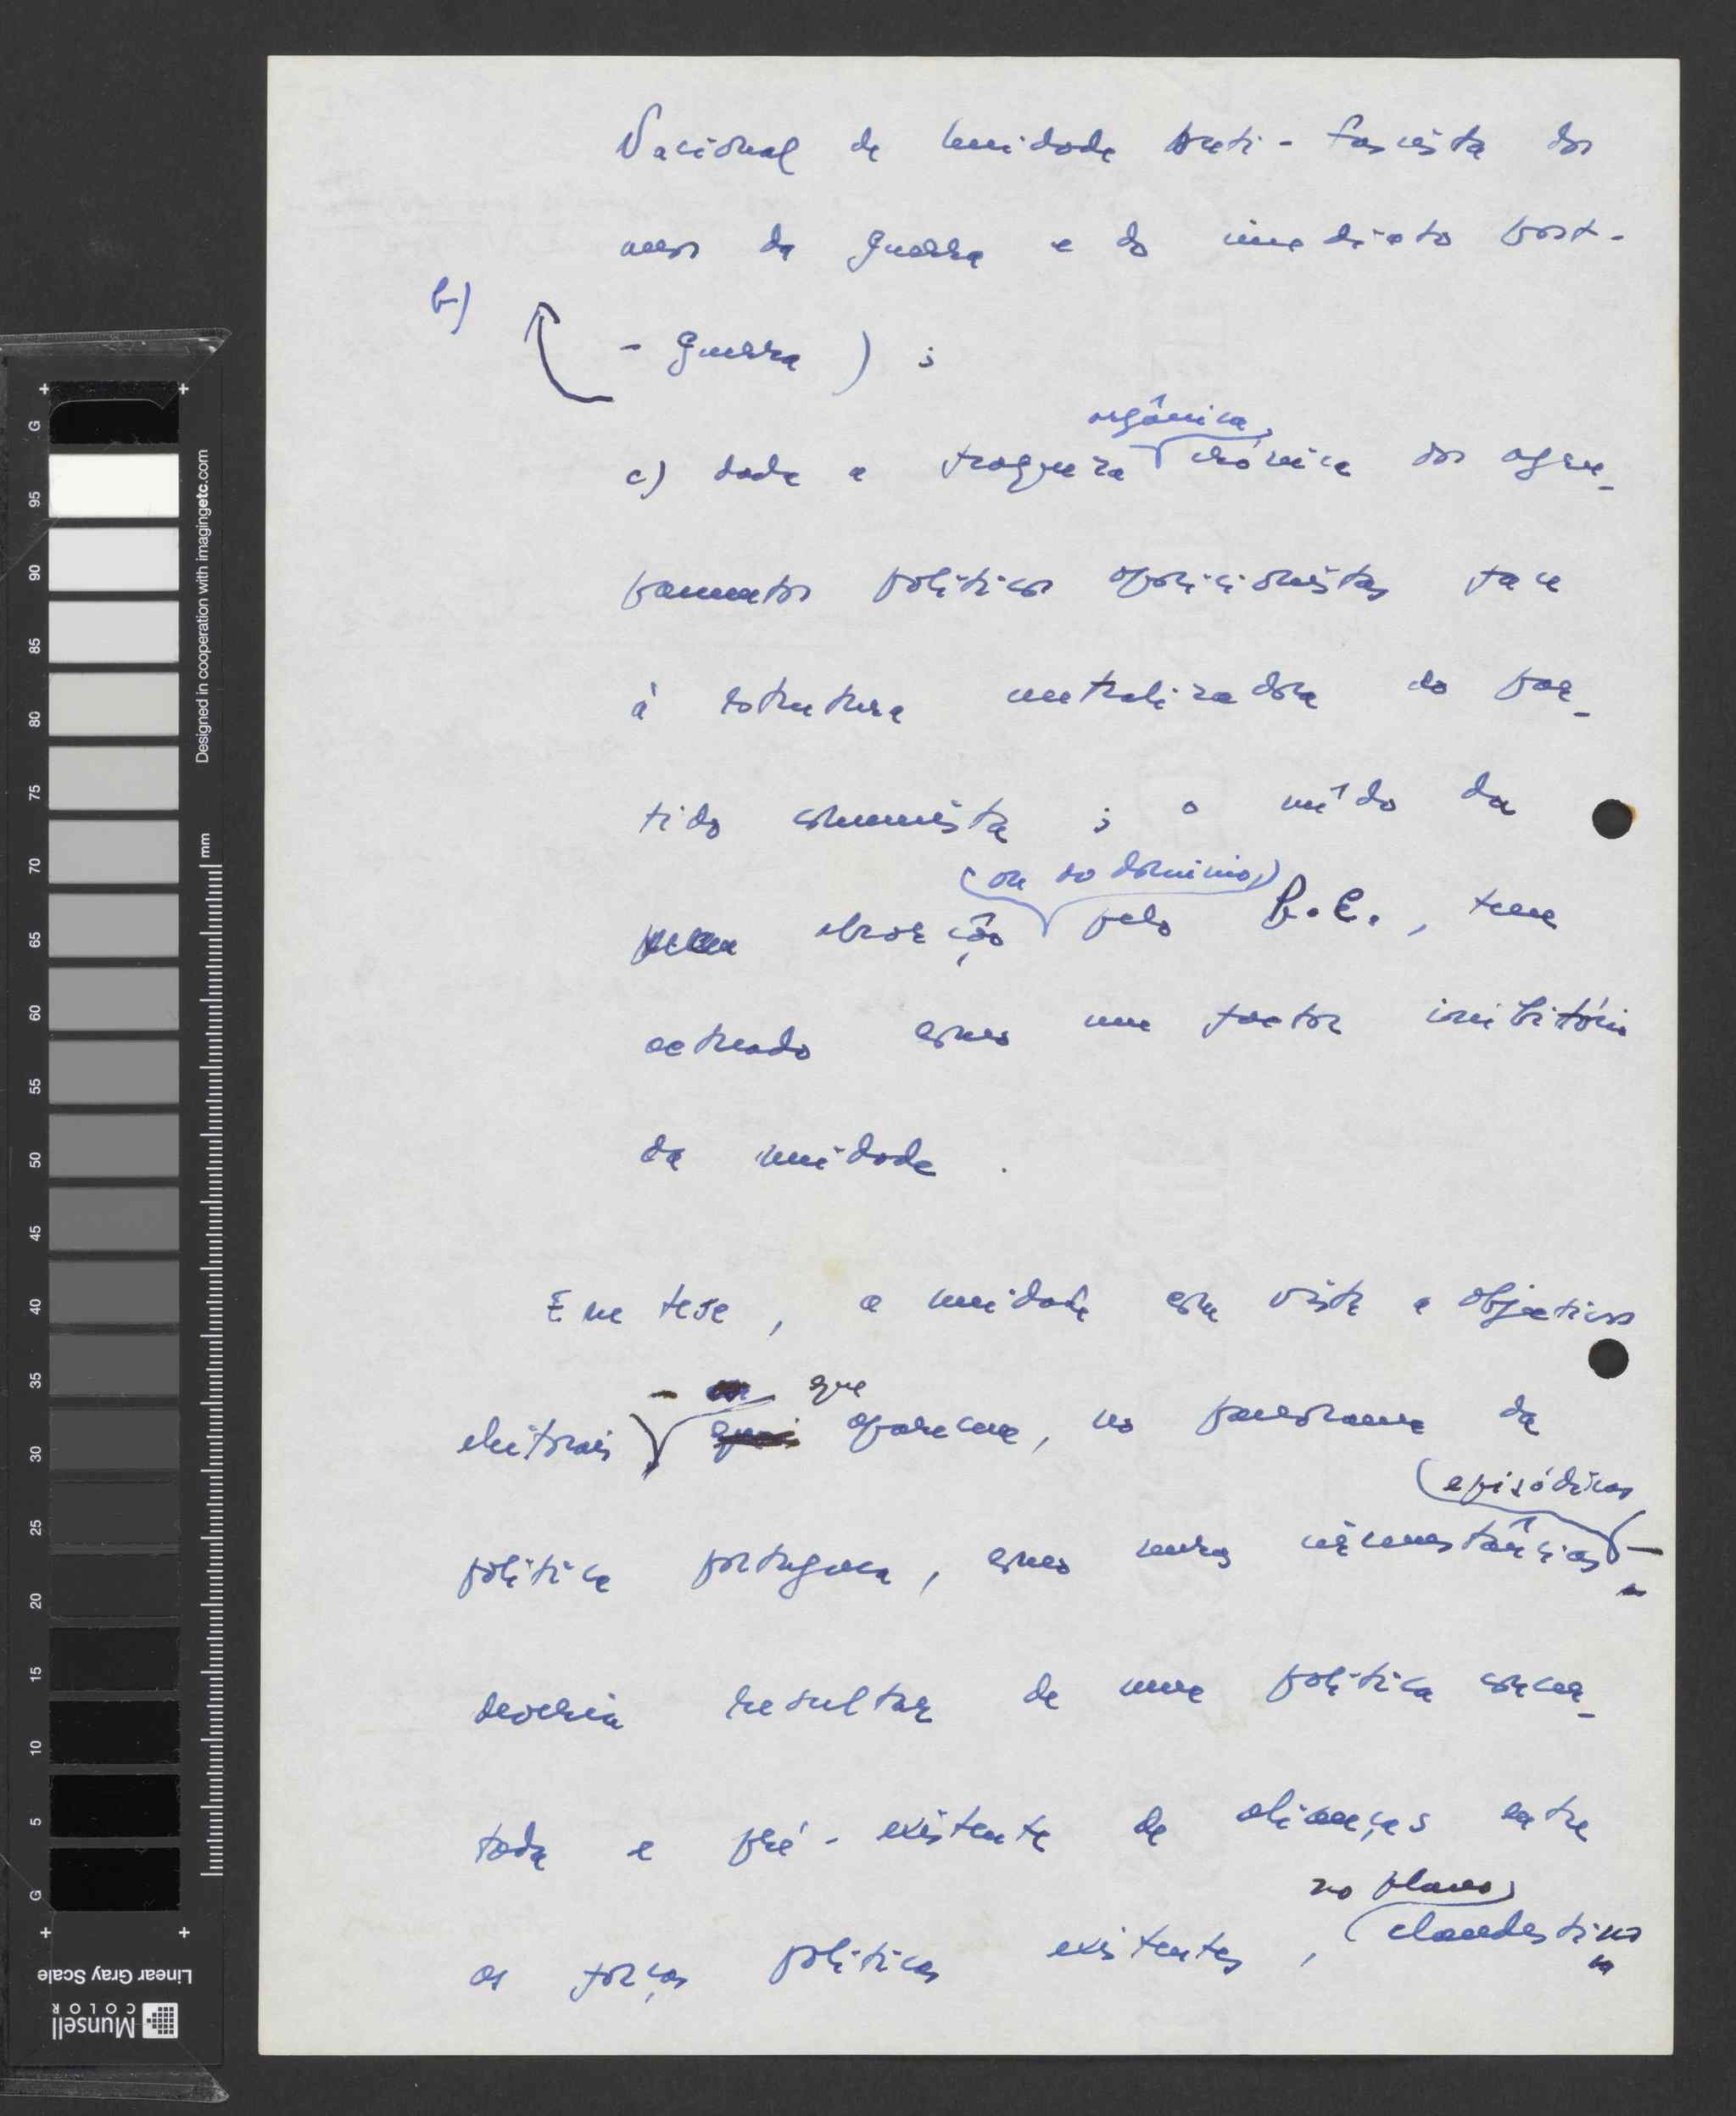 Nacional de Unidade Anti-Fascista dos
anos da guerra e do imediato post-
b)
- guerra ) ;
orgânica
c) dada a fraqueza crónica dos agru-
pamentos políticos oposicionistas face
à estrutura centralizadora do par-
tido comunista ; o mêdo da
(ou do domínio)
absorção pelo P.C., tem
actuado como um factor inibitório
da unidade.
Em tese, a unidade com vista a objectivos
- que
eleitorais aparecem, no panorama da
(episódicas
política portuguesa, como meras circunstâncias -
deveria resultar de uma política concer-
tada e pré-existente de alianças entre
no plano
as forças políticas existentes, clandestino
Designed in cooperation with imagingetc.com
mm
+ +
G
95
90
85
80
75
70
65
60
55
50
45
40
35
30
25
20
15
10
5
G
+ +
Linear Gray Scale
Munsell
COLOR